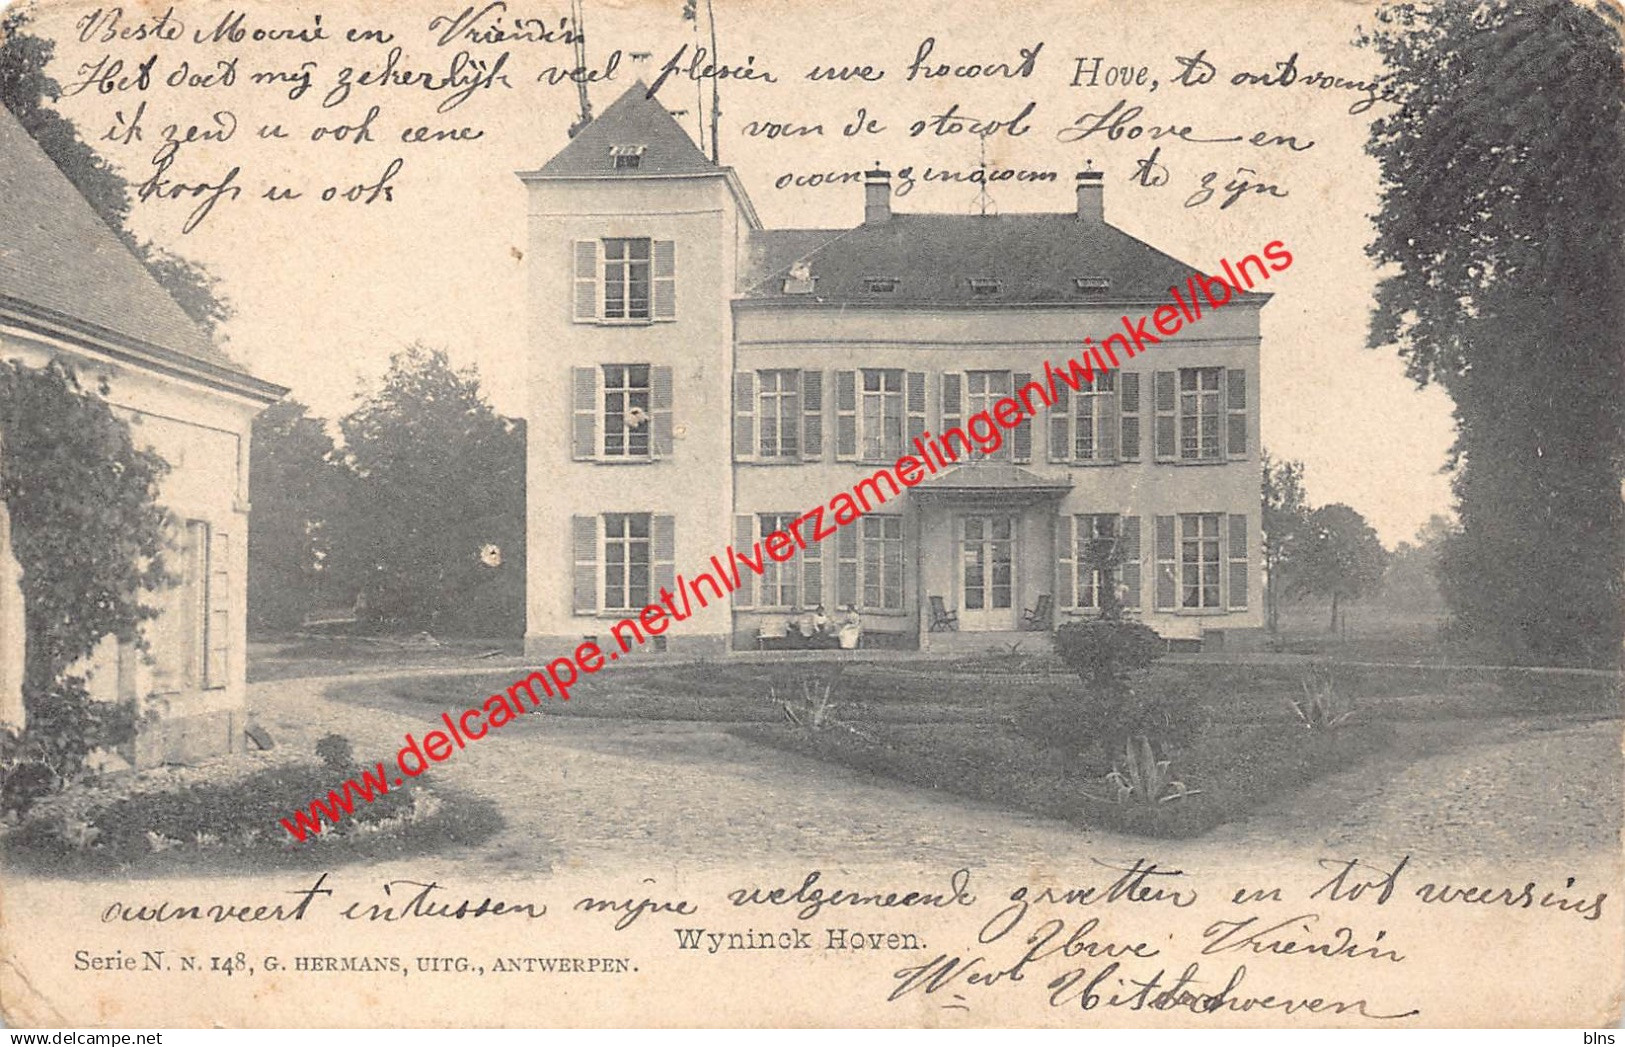 Beste Marie en Vriendin
Het doet mij zekerlijk veel plesier uwe kaart Hove, te ontvangen
ik zend u ook eene van de statol Hove en
koop u ook aangenaam te zijn
www.delcampe.net/nl/verzamelingen/winkel/blns
aanveert intussen mijne welgemeende groetten en tot weersins
Wyninck Hoven.
Uwe Vriendin
Serie N. N. 148, G. HERMANS, UITG., ANTWERPEN.
delcampe.net
blns